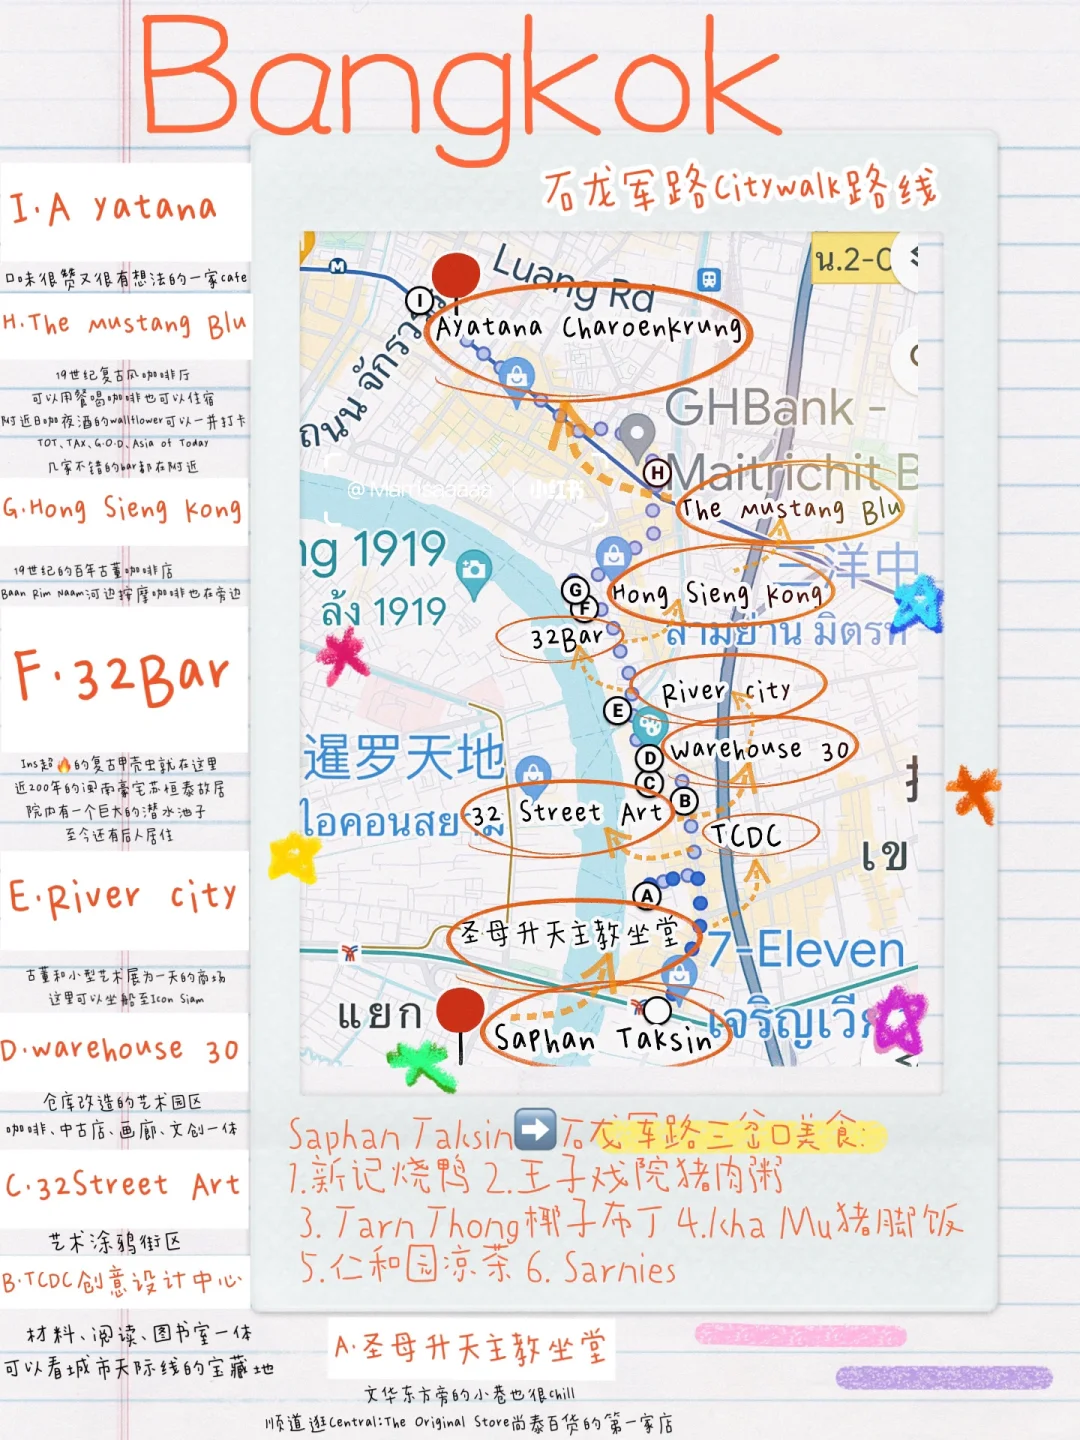 Bangkok
石龙军路Citywalk路线
I.Ayatana
口味很赞又很有想法的一家cafe
H.The mustang Blu
19世纪复古风咖啡厅
可以用餐喝咖啡也可以住宿
附近日咖夜酒的wallflower可以一并打卡
TOT、TAX、G.O.D、Asia of Today
几家不错的bar都在附近
G.Hong Sieng Kong
19世纪的百年古董咖啡店
Baan Rim Naam河边按摩咖啡也在旁边
F.32Bar
Ins超🔥的复古甲壳虫就在这里
近200年的闽南豪宅苏恒泰故居
院内有一个巨大的潜水池子
至今还有后人居住
E.River city
古董和小型艺术展为一天的商场
这里可以坐船至Icon Siam
D.warehouse 30
仓库改造的艺术园区
咖啡、中古店、画廊、文创一体
C.32Street Art
艺术涂鸦街区
B.TCDC创意设计中心
材料、阅读、图书室一体
可以看城市天际线的宝藏地
A.圣母升天主教坐堂
文华东方旁的小巷也很chill
顺道逛Central:The Original Store尚泰百货的第一家店
น.2-0
M
Luang Rd
I
Ayatana Charoenkrung
ถนน จักรว
GHBank -
Maitrichit B
H
The mustang Blu
小红书
ng 1919
ล้ง 1919
三洋中
สามย่าน มิตรท
G
F
Hong Sieng Kong
32Bar
River city
E
D
warehouse 30
C
B
暹罗天地
ไอคอนสยาม
32 Street Art
TCDC
เข
A
圣母升天主教坐堂
7-Eleven
เจริญเวีย
แยก
Saphan Taksin
Saphan Taksin➡️石龙军路三岔口美食:
1.新记烧鸭 2.王子戏院猪肉粥
3. Tarn Thong椰子布丁 4.Kha Mu猪脚饭
5.仁和园凉茶 6. Sarnies